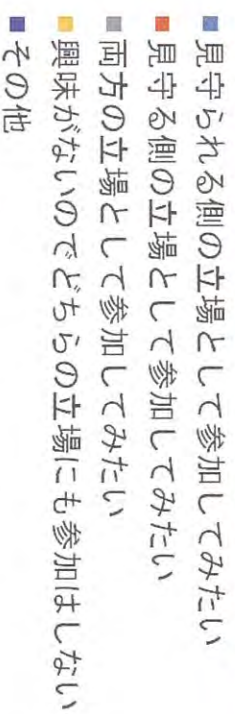 見守られる側の立場として参加してみたい
見守る側の立場として参加してみたい
両方の立場として参加してみたい
興味がないのでどちらの立場にも参加はしない
その他